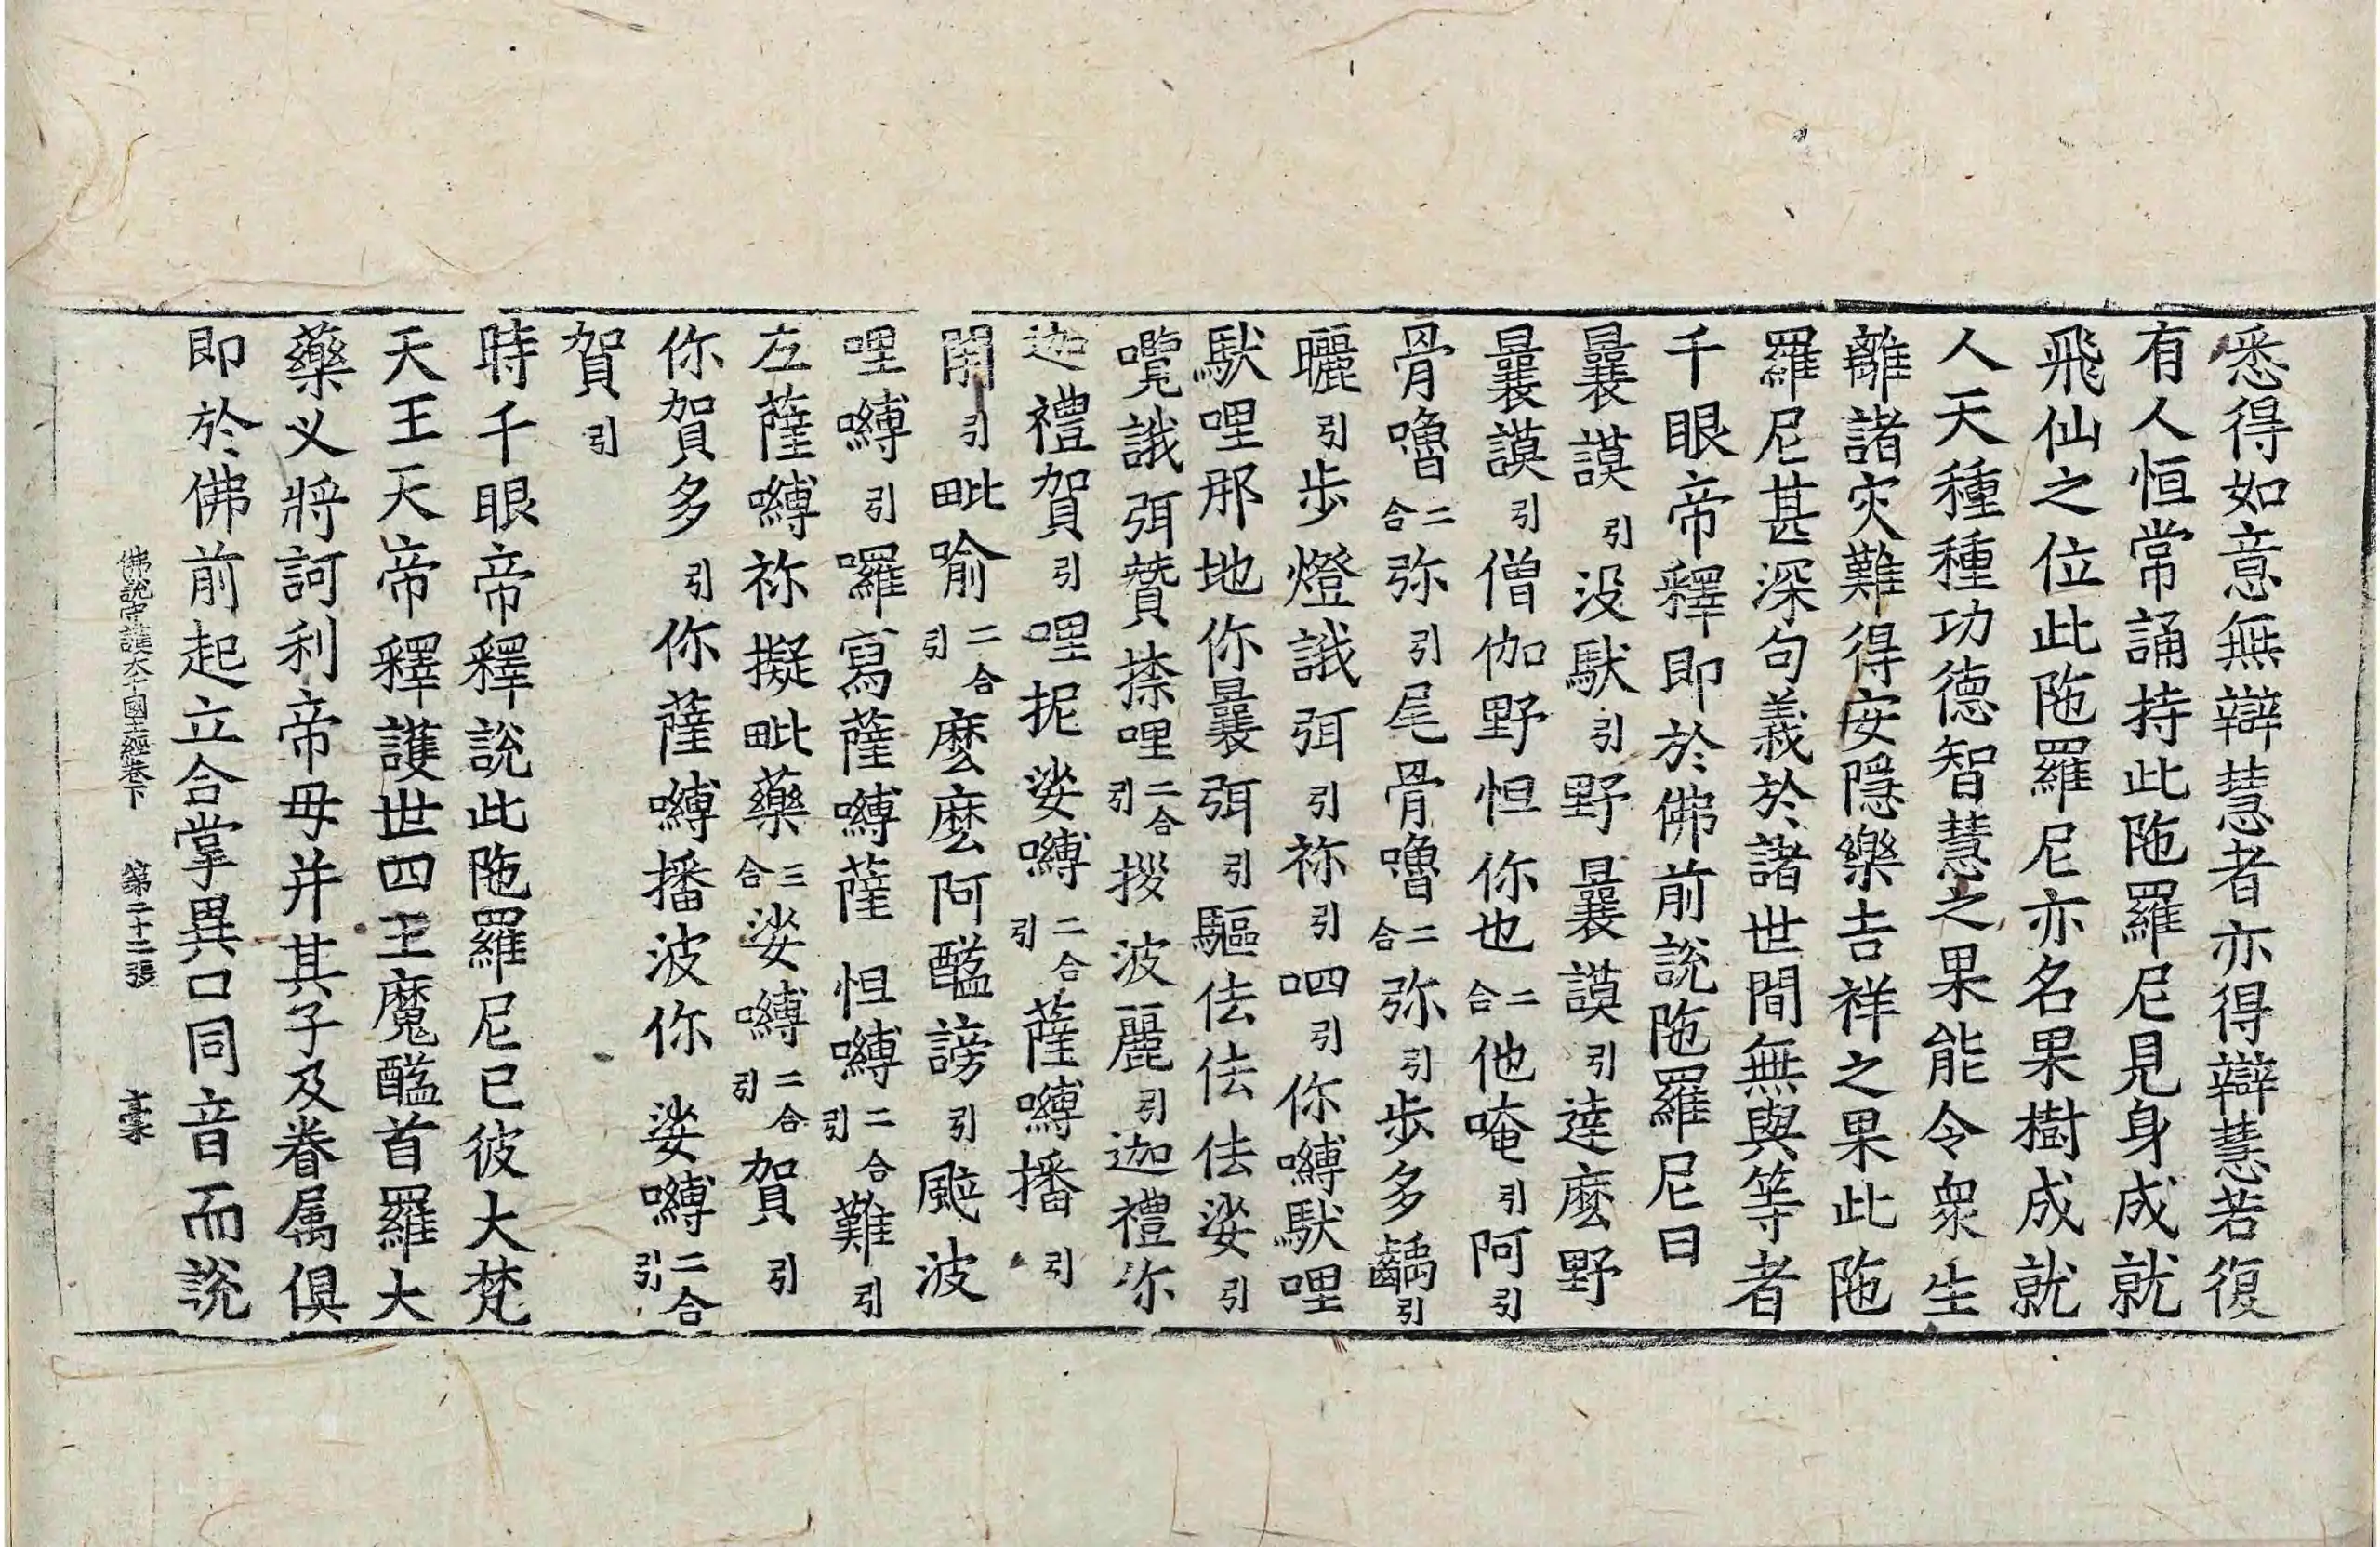 悉得如意無辯慧者亦得辯慧若復
有人恒常誦持此陁羅尼見身成就
飛仙之位此陁羅尼亦名果樹成就
人天種種功德智慧之果能令衆生
離諸灾難得安隱樂吉祥之果此陁
羅尼甚深句義於諸世間無與等者
千眼帝釋即於佛前說陁羅尼曰
曩謨引没馱引野曩謨引達麽野
曩謨引僧伽野怛你也二合他唵引阿引
骨嚕二合弥引尾骨嚕二合弥引步多齲引
曬引步燈誐弭引祢引呬引你嚩馱哩
馱哩那地你曩弭引驅佉佉佉娑引
囕誐弭贊捺哩二合引拶波麗引迦禮你
迦禮賀引哩抳娑嚩二合引薩嚩播引
閉引毗喻二合引麽麽阿醯謗引颰波
哩嚩引囉寫薩嚩薩怛嚩二合引難引
左薩嚩祢擬毗藥三合娑嚩二合引賀引
你賀多引你薩嚩播波你娑嚩二合引
賀引
時千眼帝釋說此陁羅尼已彼大梵
天王天帝釋護世四王魔醯首羅大
藥义將訶利帝母并其子及眷属俱
即於佛前起立合掌異口同音而說
佛說守護大千國王經卷下 第二十二張 豪